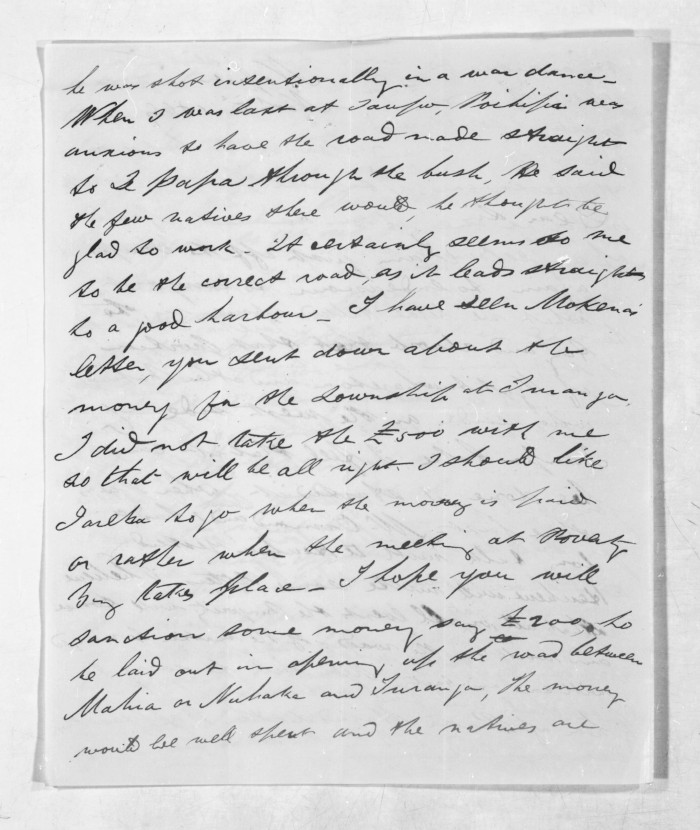 he was shot intentionally in a war dance -
When I was last at Taupo, Poihipi was
anxious to have the road made straight
to Te Papa through the bush, He said
the few natives there would, he thought be
glad to work - It certainly seems to me
to be the correct road, as it leads straight
to a good harbour - I have seen Mokena's
letter, you sent down about the
money for the Township at Turanga,
I did not take the £500 with me
so that will be all right I should like
Tareha to go when the money is paid
or rather when the meeting at Poverty
Bay takes place - I hope you will
sanction some money say £200, to
be laid out in opening up the road between
Mahia or Nuhaka and Turanga, The money
would be well spent and the natives are